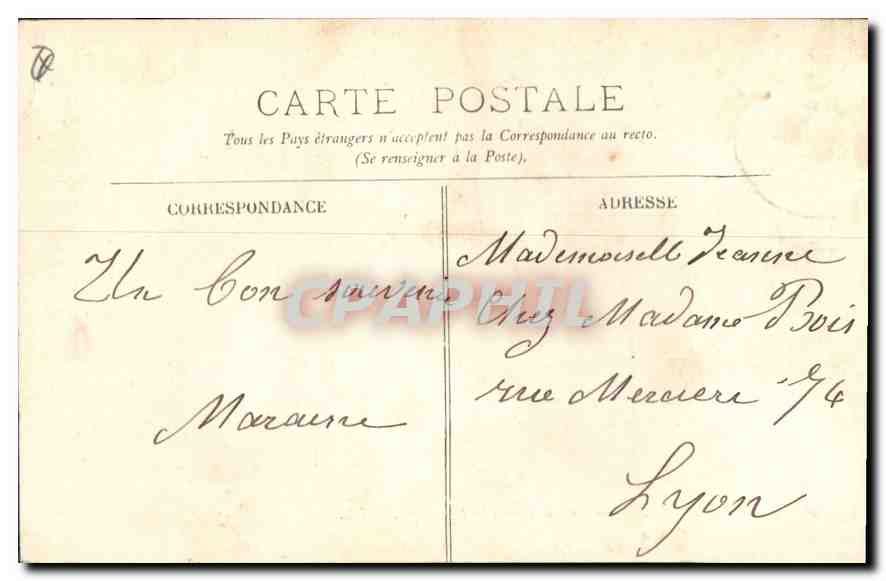 CARTE POSTALE
Tous les Pays étrangers n'acceptent pas la Correspondance au recto.
(Se renseigner à la Poste).
CORRESPONDANCE
ADRESSE
Un bon souvenir
Mademoiselle Jeanne
Chez Madame Bois
rue Merciere 74
Lyon
CPAPHIL